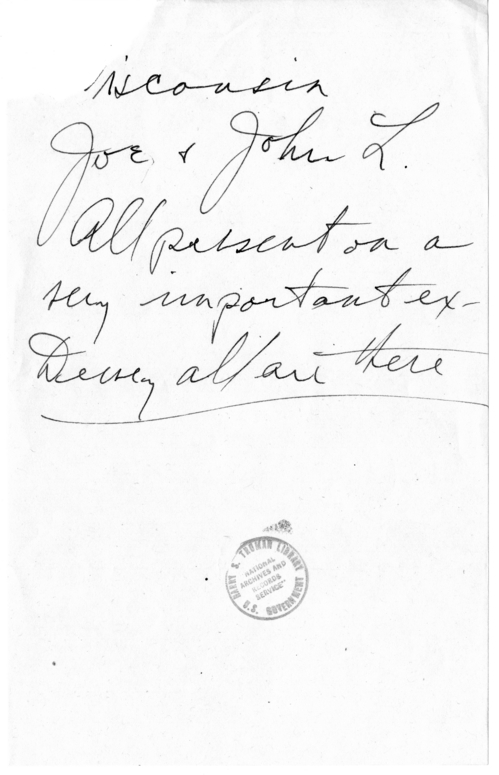 isconsin
Joe & John L.
All present on a
very important ex-
Dewey all are there
HARRY S. TRUMAN LIBRARY
NATIONAL
ARCHIVES AND
RECORDS
SERVICE
U.S. GOVERNMENT